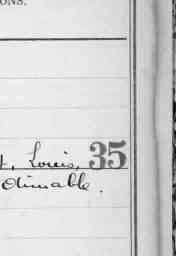 ONS.
t, Louis, 35
dimable.